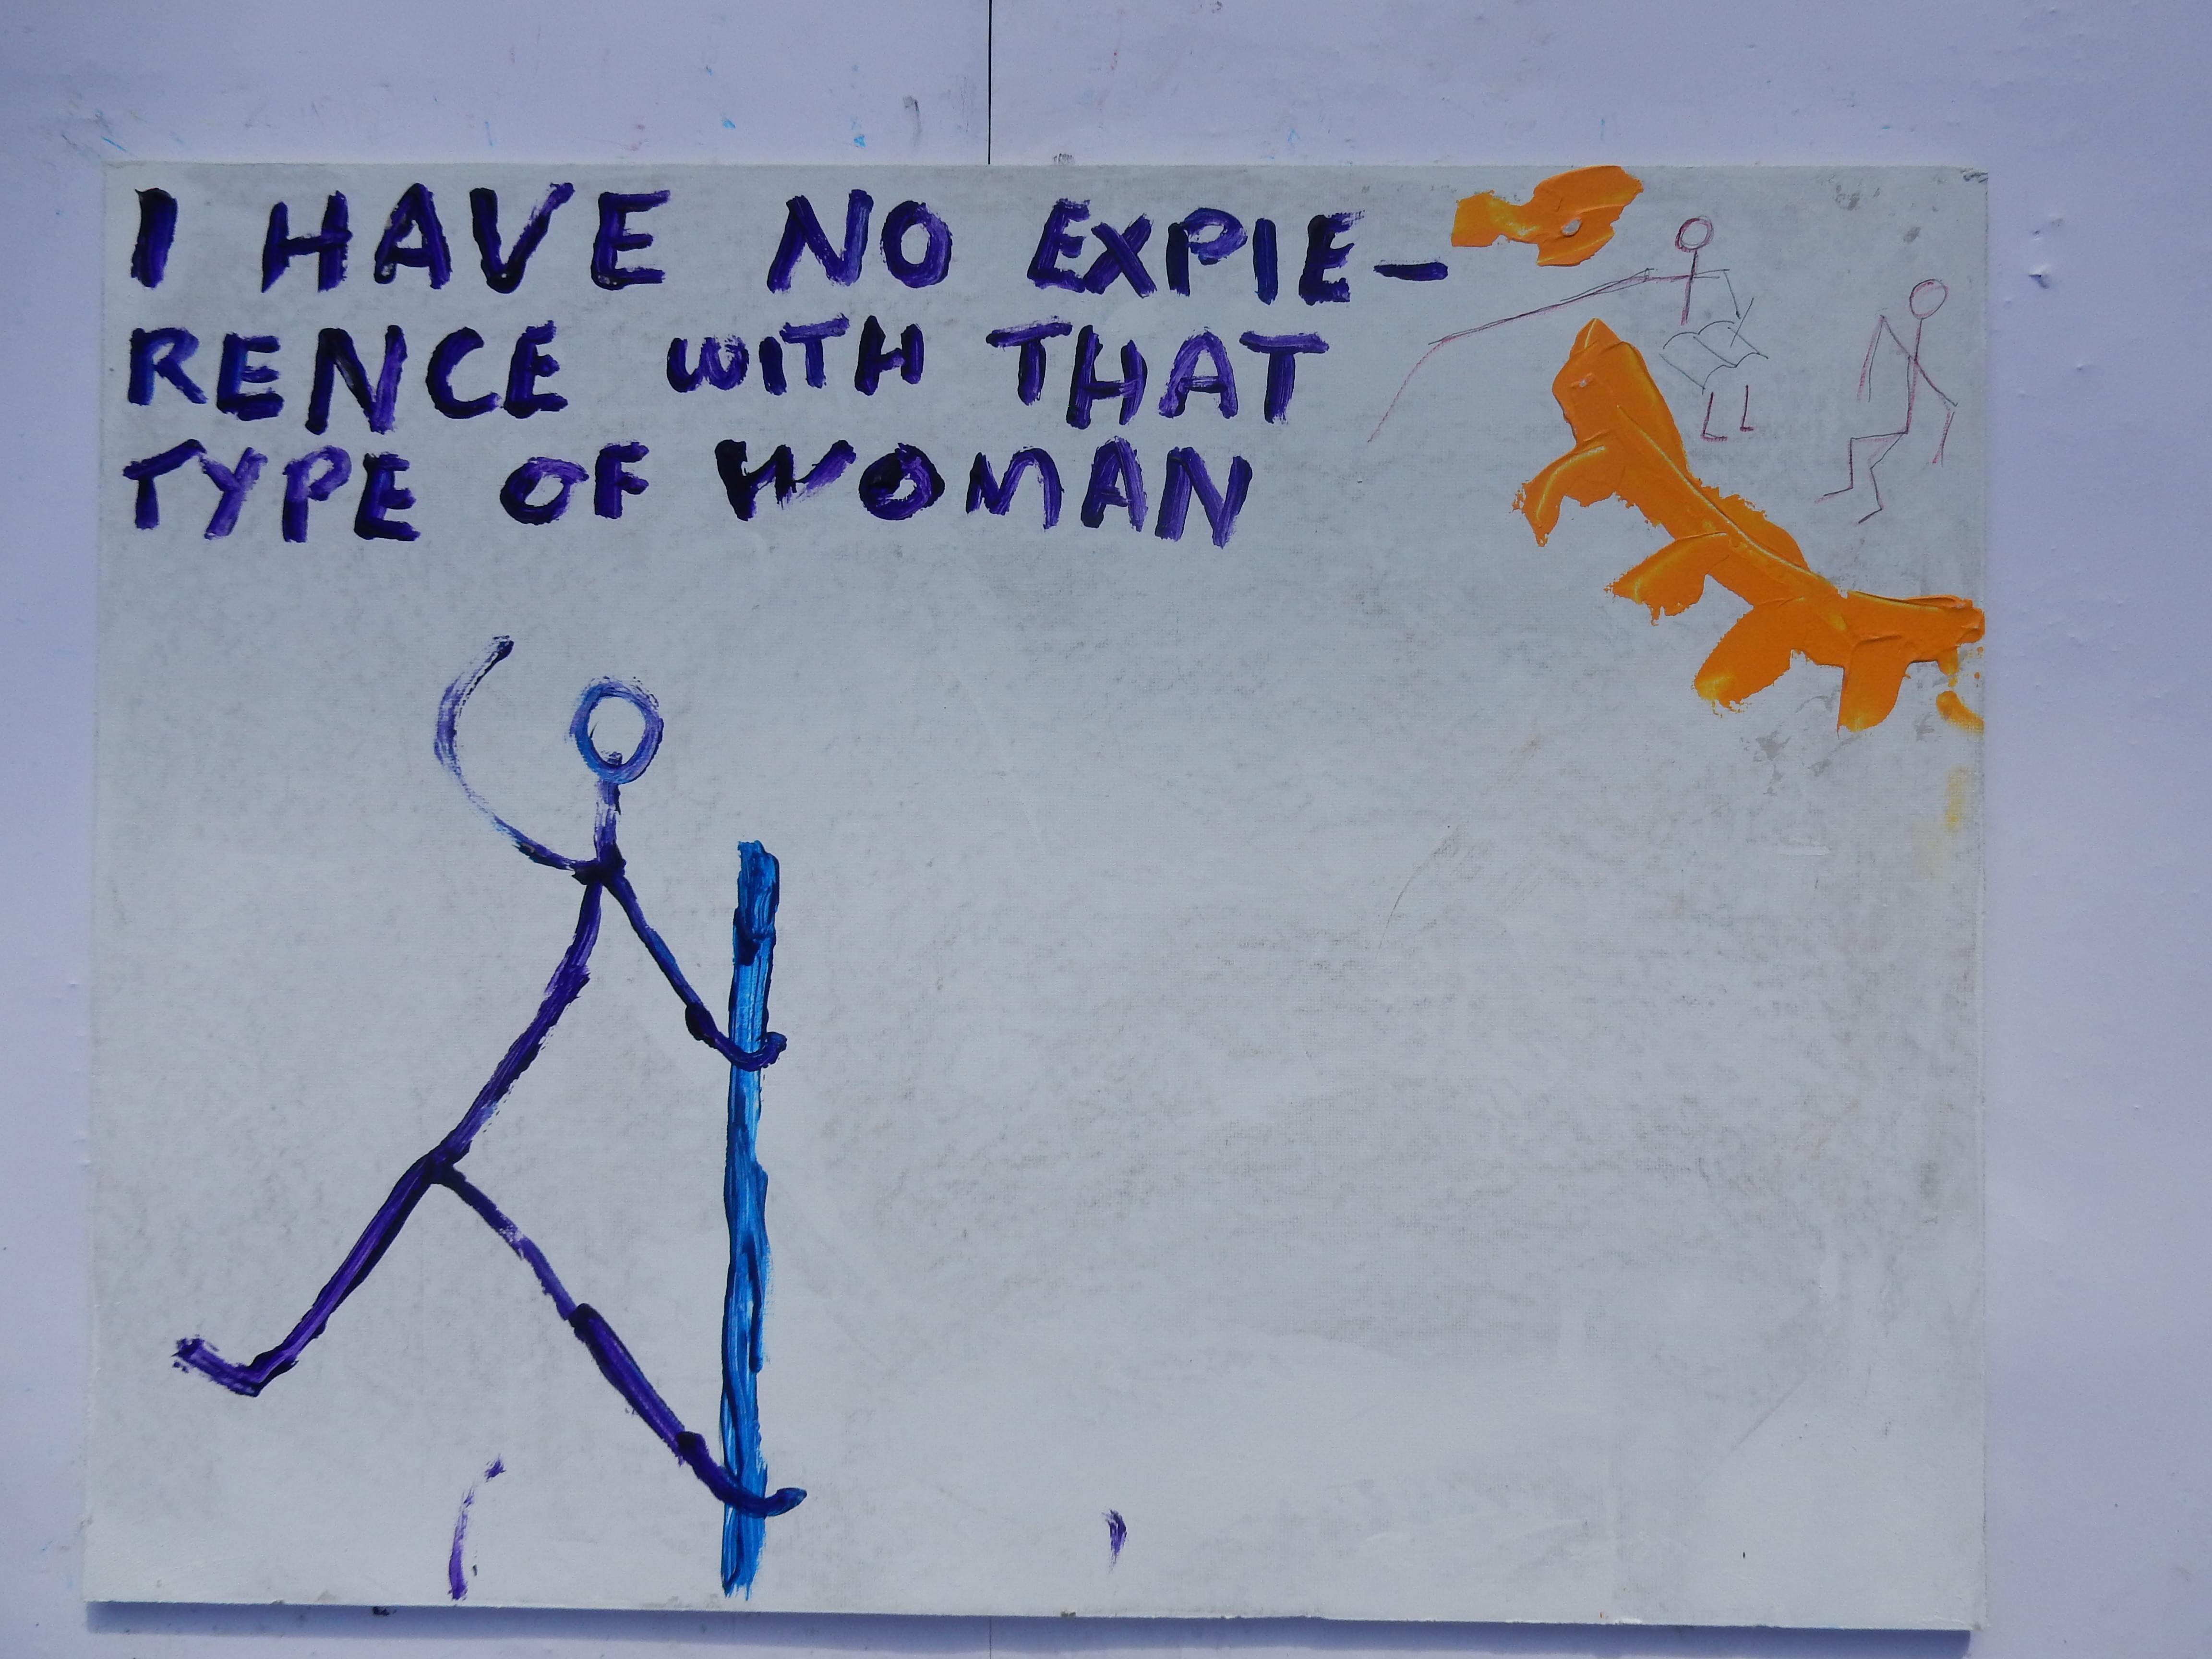 I HAVE NO EXPIE-
RENCE WITH THAT
TYPE OF WOMAN